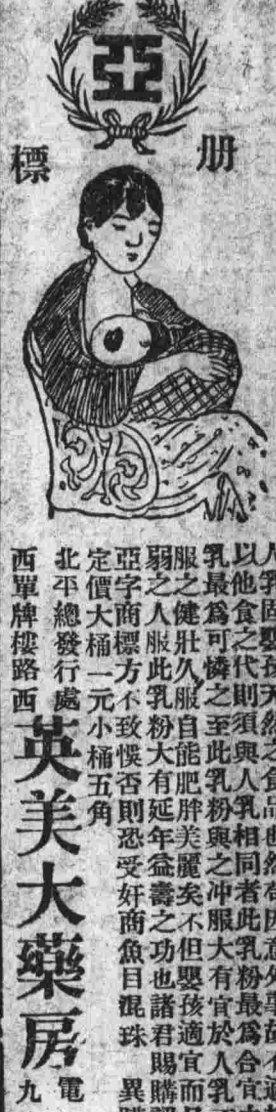 亞
册
標
人乳固嬰孩天然之食品也然
以他食之代則須與人乳相同者此乳粉最爲合宜
乳最爲可憐之至此乳粉與之冲服大有宜於人乳
服之健壯久服自能肥胖美麗矣不但嬰孩適宜而
弱之人服此乳粉大有延年益壽之功也諸君賜購
亞字商標方不致悞否則恐受奸商魚目混珠
定價大桶一元小桶五角
北平總發行處
西單牌樓路西
英美大藥房
電
九